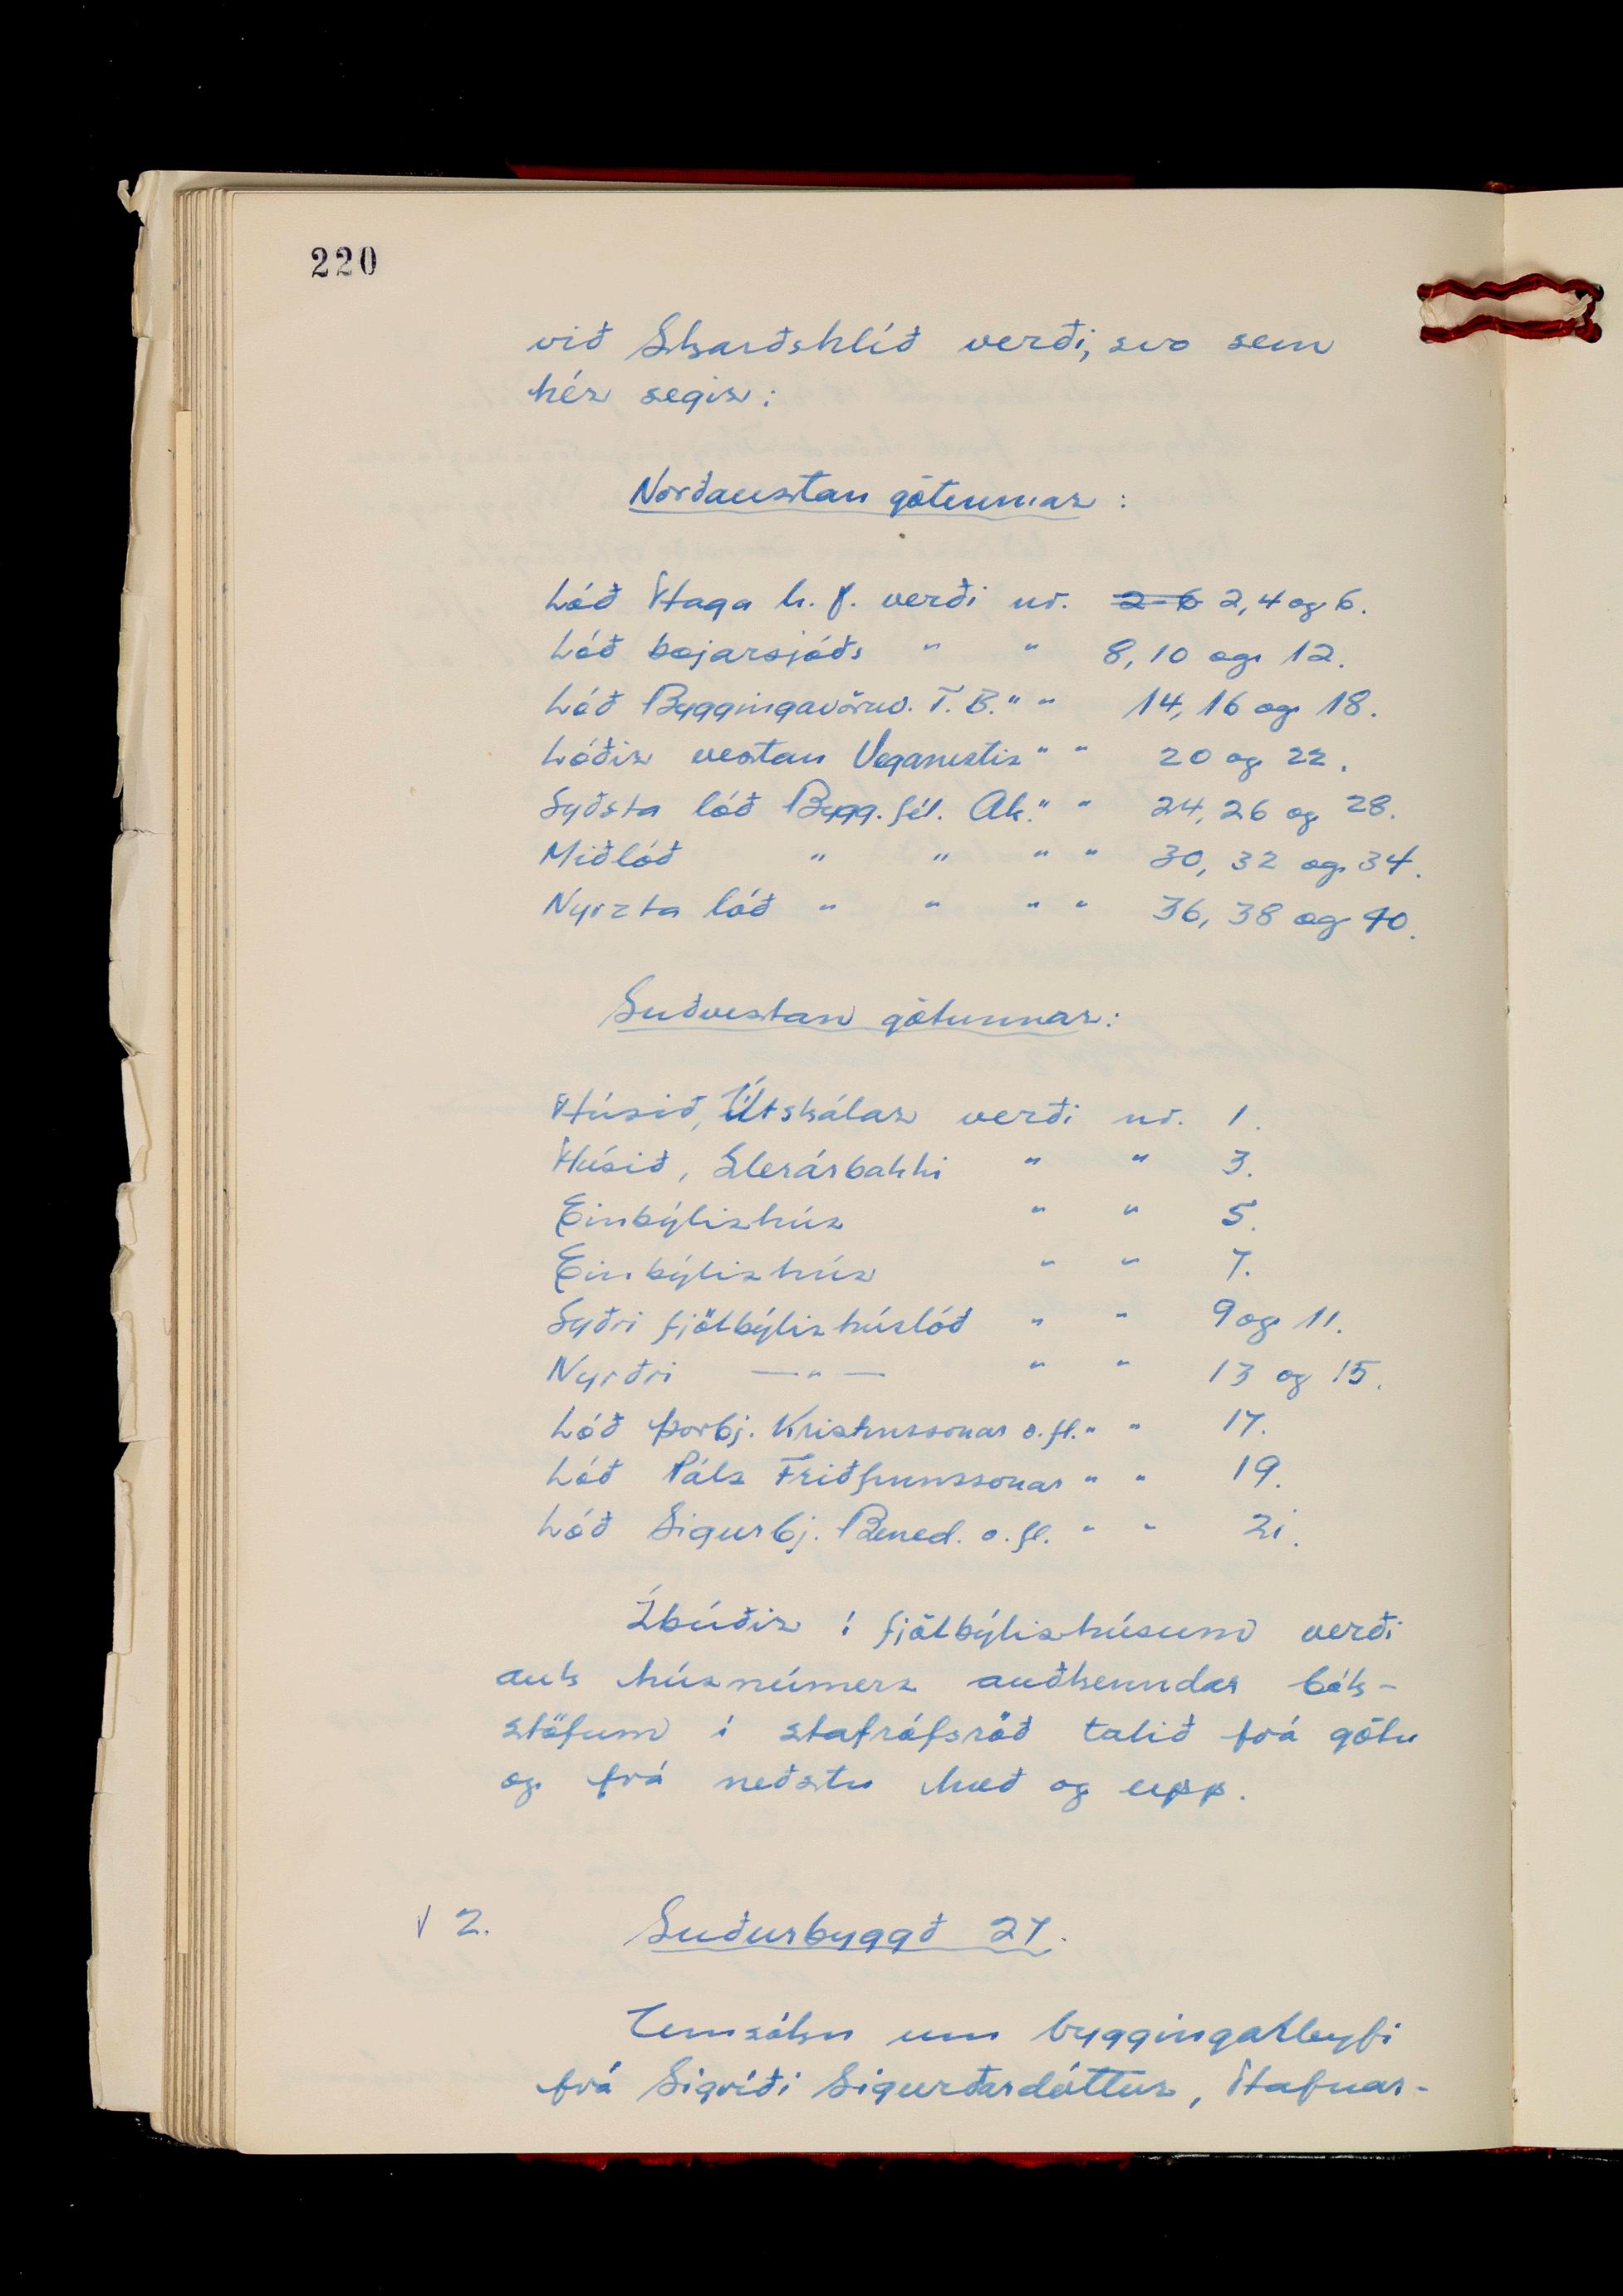 220
við Skarðshlíð verði, svo sem
hér segir:
Norðaustan götunnar:
Lóð Haga h.f. verði nr. 2-6 2, 4 og 6.
Lóð bæjarsjóðs " " 8, 10 og 12.
Lóð Byggingavöruv. T.B. " " 14, 16 og 18.
Lóðir vestan Veganestis " " 20 og 22.
Syðsta lóð Bygg.fél. Ak. " " 24, 26 og 28.
Miðlóð " " " " 30, 32 og 34.
Nyrzta lóð " " " " 36, 38 og 40.
Suðvestan götunnar:
Húsið, Útskálar verði nr. 1.
Húsið, Glerárbakki " " 3.
Einbýlishús " " 5.
Einbýlishús " " 7.
Syðri fjölbýlishúslóð " " 9 og 11.
Nyrðri — " — " " 13 og 15.
Lóð Þorbj. Kristinssonar o.fl. " " 17.
Lóð Páls Friðfinnssonar " " 19.
Lóð Sigurbj. Bened. o.fl. " " 21.
Íbúðir í fjölbýlishúsum verði
auk húsnúmers auðkenndar bók-
stöfum í stafrófsröð talið frá götu
og frá neðstu hæð og upp.
√ 2. Suðurbyggð 27.
Umsókn um byggingarleyfi
frá Sigríði Sigurðardóttur, Hafnar-